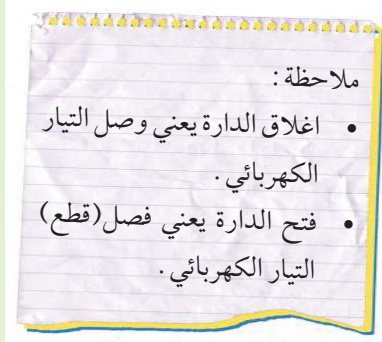 ملاحظة :
• اغلاق الدارة يعني وصل التيار
الكهربائي .
• فتح الدارة يعني فصل (قطع)
التيار الكهربائي .